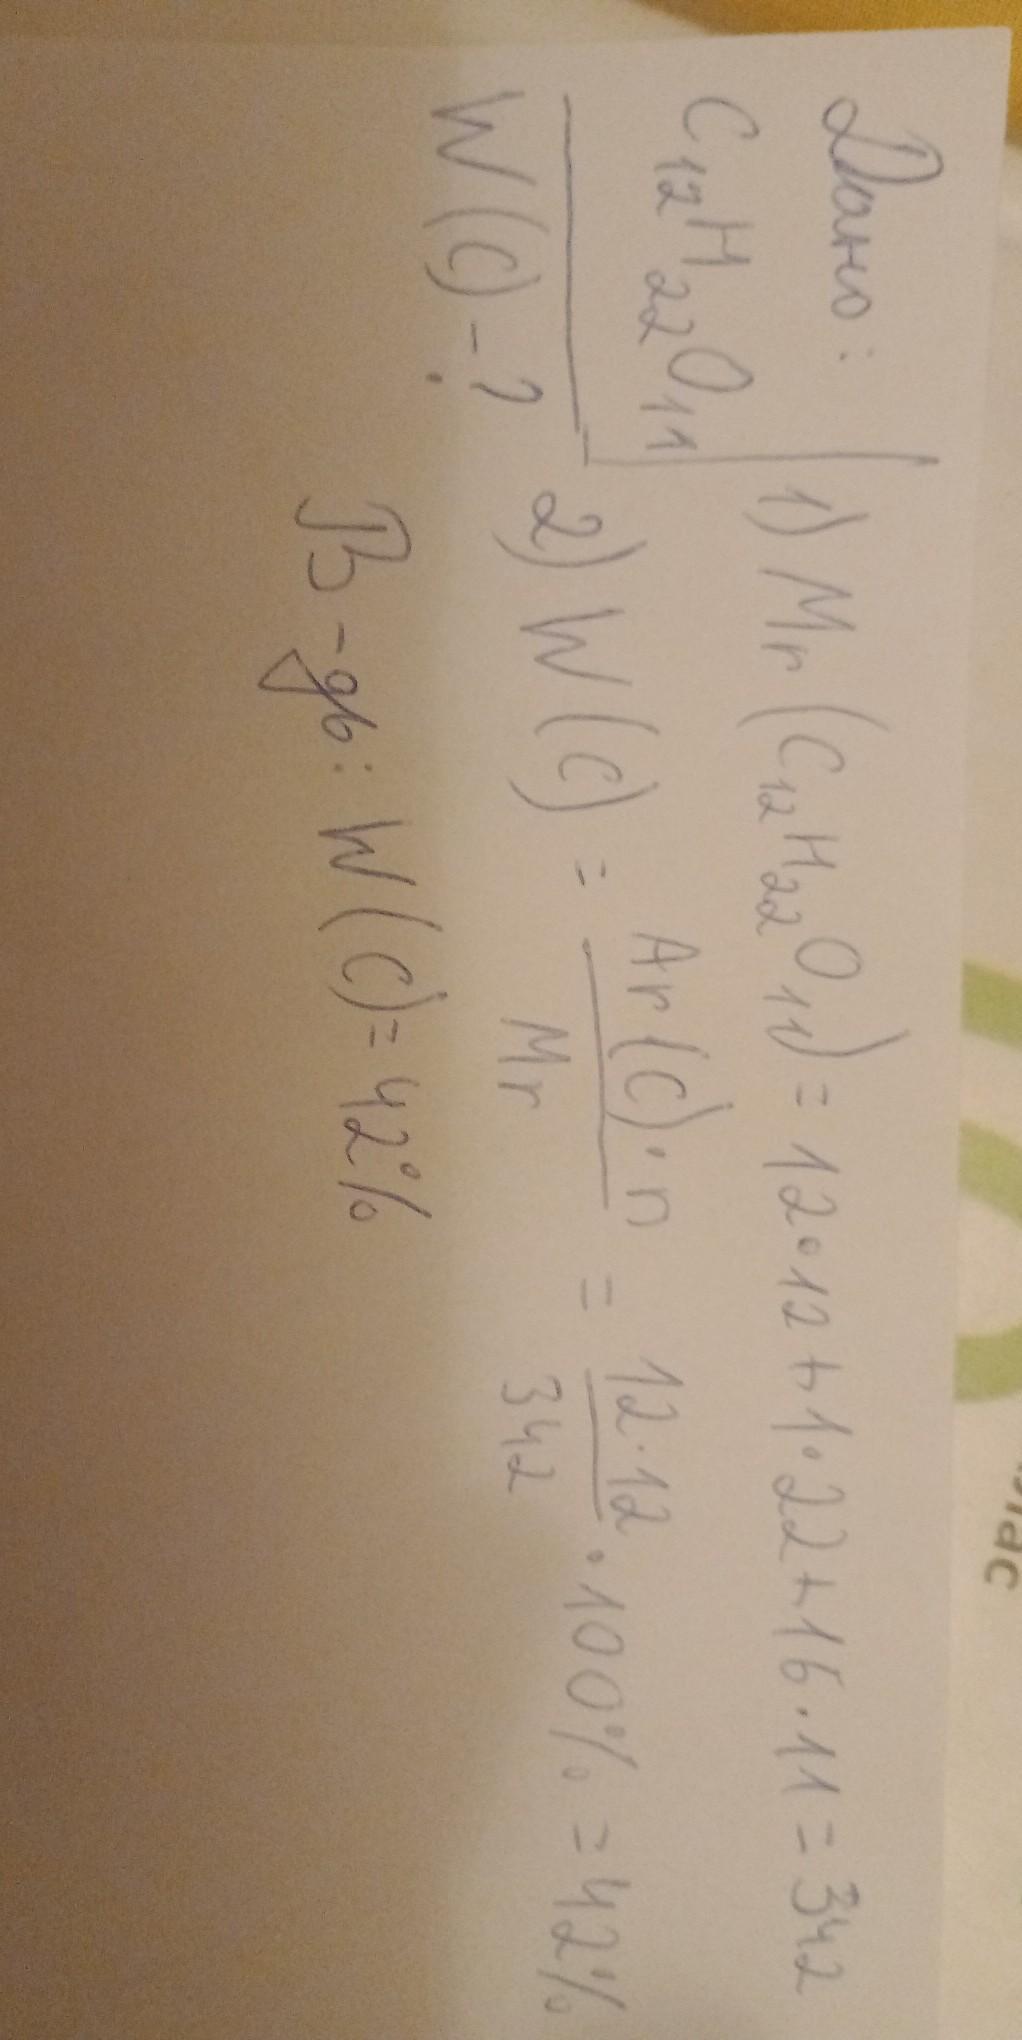 Дано:
C12H22O11
W(C)-?
1) Mr(C12H22O11)=12•12+1•22+16•11=342
2) W(C) = Ar(C)•n / Mr = 12•12 / 342 • 100% = 42%
В-дь: W(C)=42%